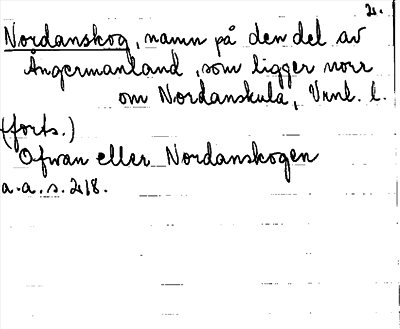 2.
Nordanskog, namn på den del av
Ångermanland, som ligger norr
om Nordanskula, Vnl. l.
(forts.)
Ofwan eller Nordanskogen
a. a. s. 218.